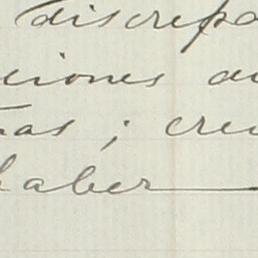 discrepa
ciones au
nas ; cree
haber